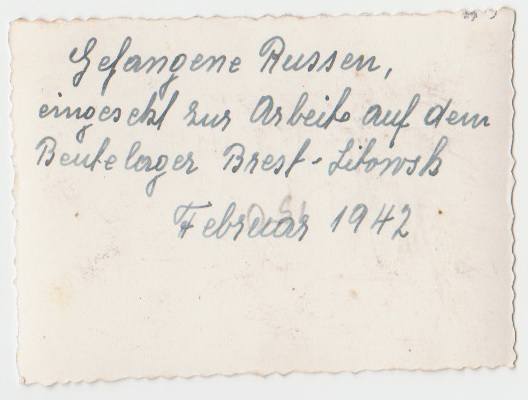 Gefangene Russen,
eingesetzt zur Arbeit auf dem
Beutelager Brest-Litowsk
Februar 1942